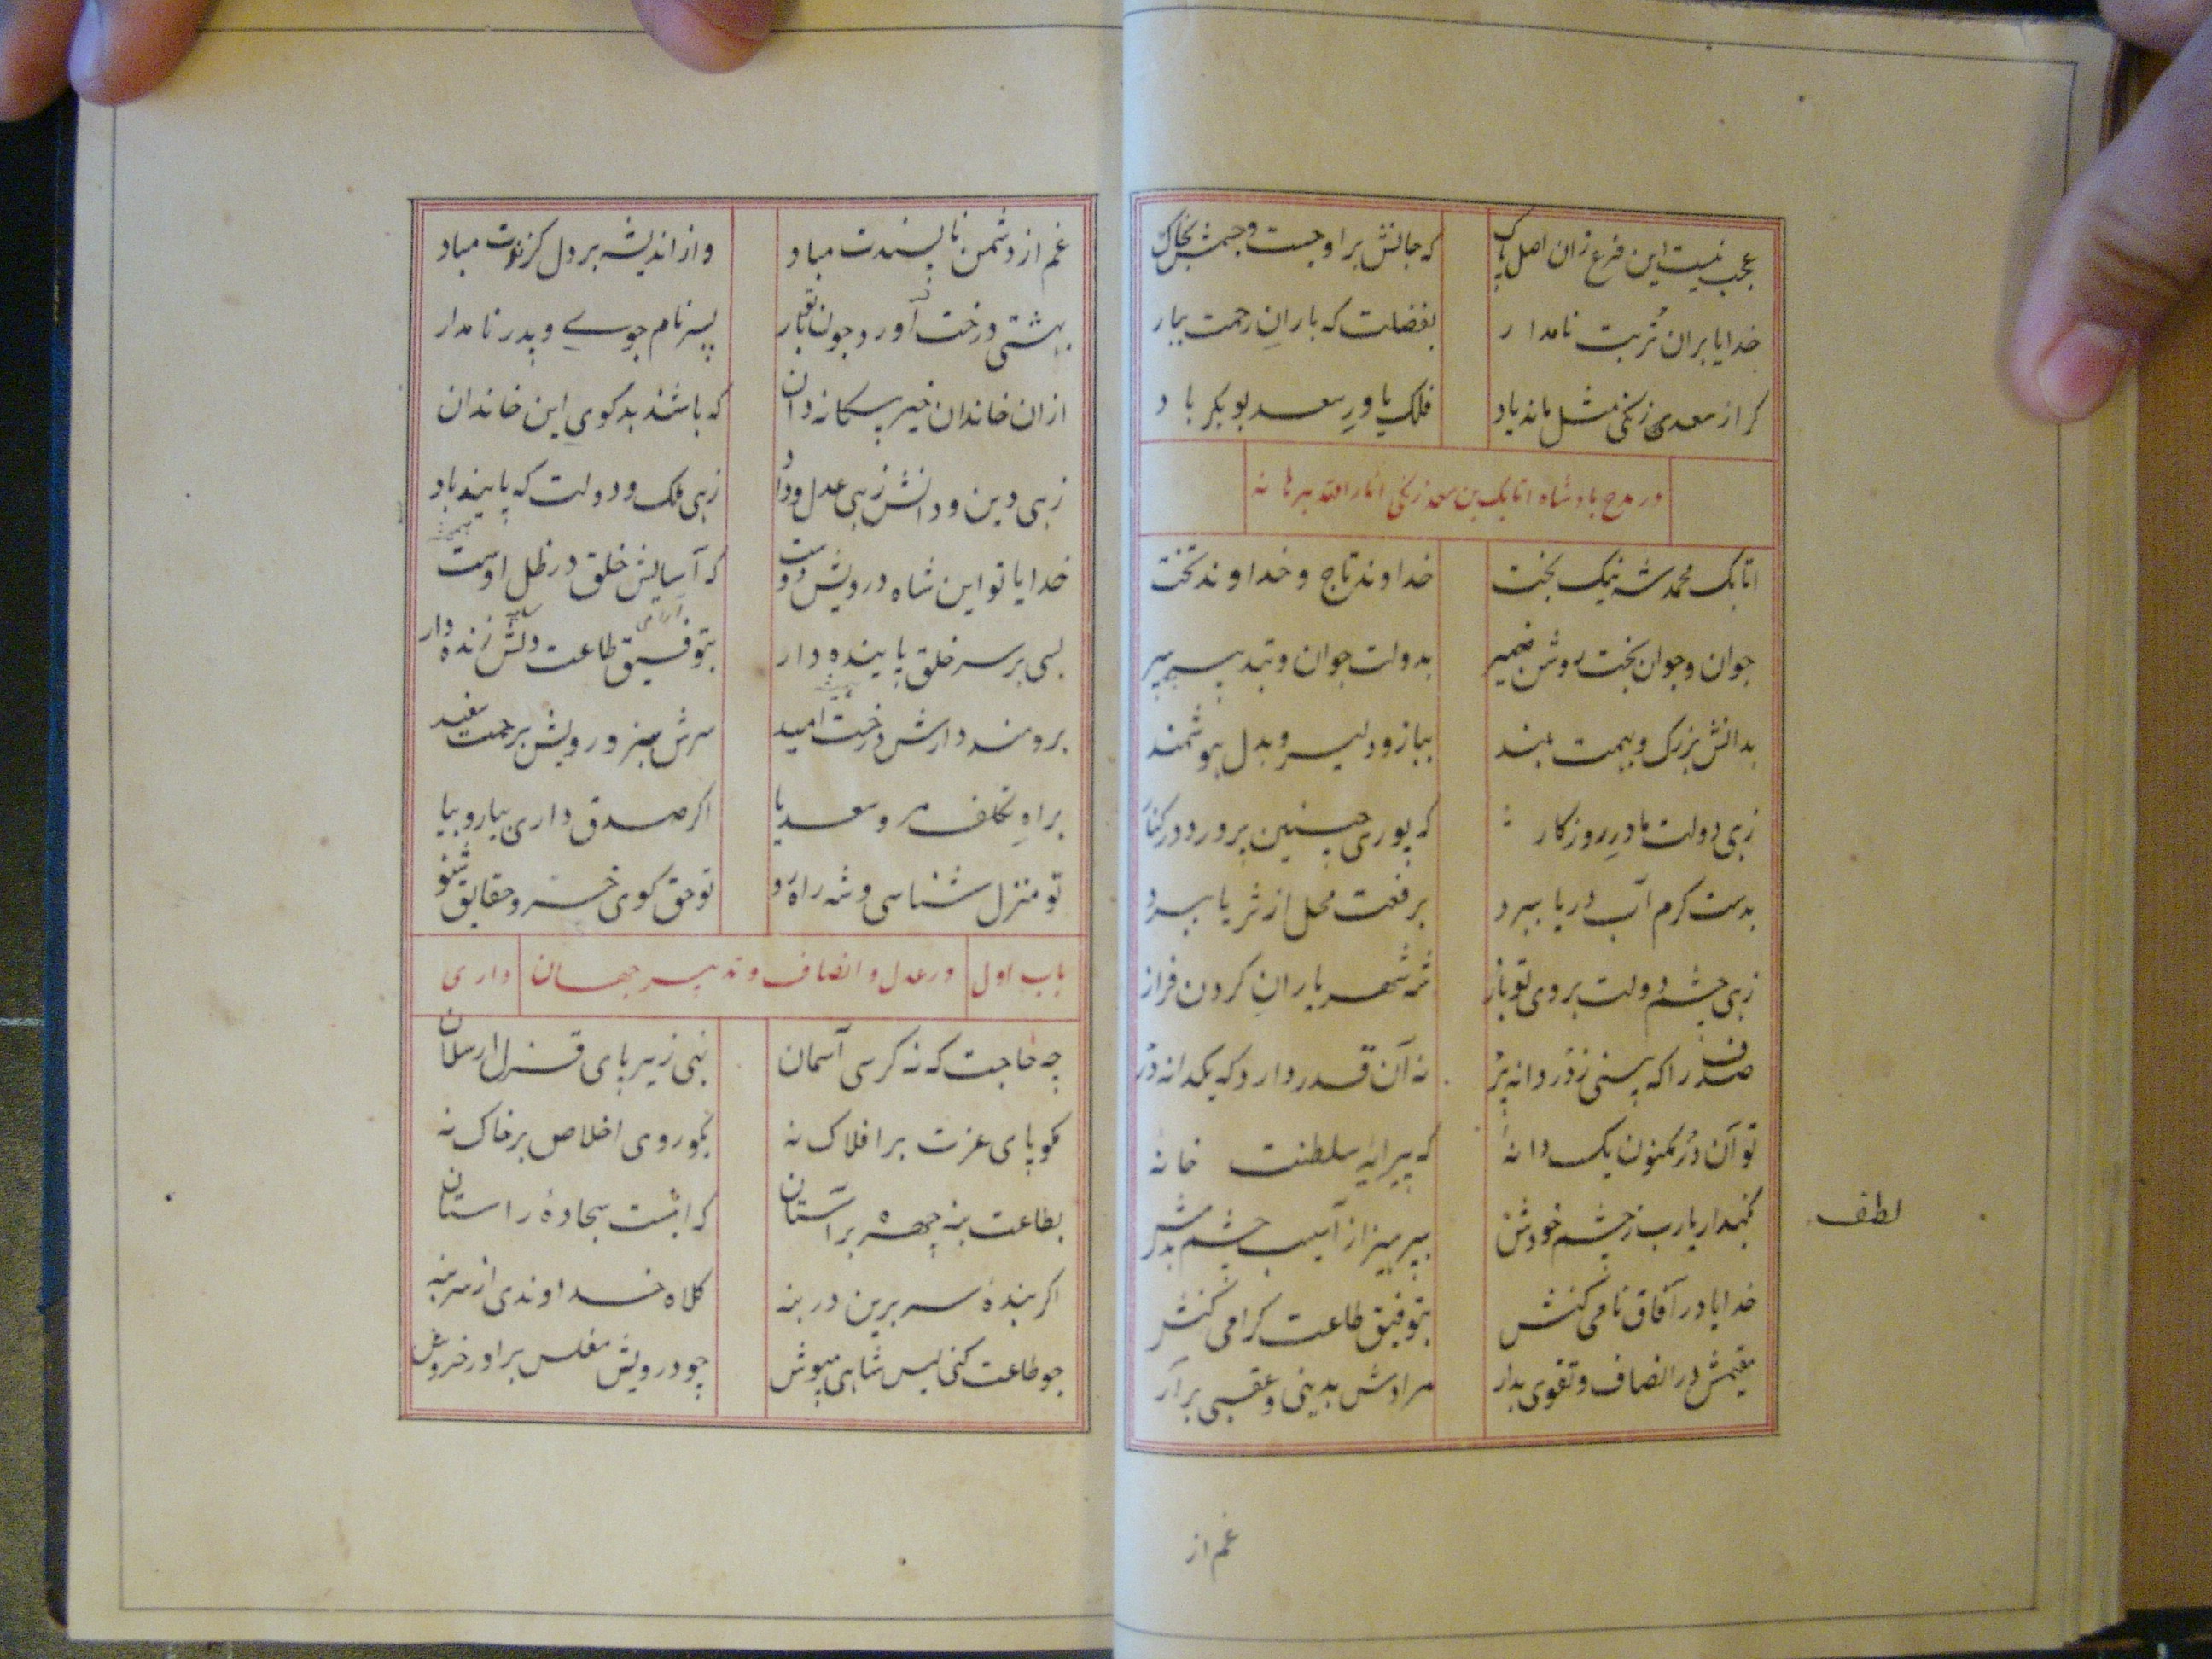 عجب نیست این فرع زان اصل پاک که جانش بر اوجست و جسمش بخاک
خدایا بران تُربت نامدار بفضلت که بارانِ رحمت ببار
گر از سعدی زنکی مثل ماند یاد فلک یاورِ سعد بوبکر باد
در مدح پادشاه اتابک بن سعد زنکی انار الله برهانه
اتابک محمد شه نیک بخت خداوند تاج و خداوند تخت
جوان و جوان بخت روشن ضمیر بدولت جوان و بتدبیر پیر
بدانش بزرک و بهمت بلند ببازو دلیر و بدل هوشمند
زهی دولت مادرِ روزکار که پوری چنین پرورد در کنار
بدست کرم آب دریا ببرد برفعت محل از ثریا ببرد
زهی چشم دولت بروی تو باز شه شهریارانِ کردن فراز
صدف را که بینی ز دُر دانه پُر نه آن قدر دارد که یکدانه دُر
تو آن دُر مکنون یک دانهٔ که پیرایهٔ سلطنت خانهٔ
نکهدار یا رب ز چشم خودش بپرهیز از آسیب چشم بدش
لطف
خدایا در آفاق نامی کنش بتوفیق طاعت کرامی کنش
مقیمش در انصاف و تقوی بدار مرادش بدینی و عقبی برآر
غم از
غم از دشمن ناپسندت مباد وز اندیشه بر دل کزندت مباد
بهشتی درخت آورد چون تو بار پسر نام جوی و پدر نامدار
ازان خاندان خیر بیکانه دان که باشند بدکوی این خاندان
زهی دین و دانش زهی عدل و داد زهی ملک و دولت که پاینده باد
خدایا تو این شاه درویش دوست که آسایش خلق در ظل اوست
بسی بر سر خلق پاینده دار بتوفیق طاعت دلش زنده دار
برومند دارش درخت امید سرش سبز و رویش برحمت سفید
براهِ تکلف مرو سعدیا اکر صدق داری بیار و بیا
تو منزل شناسی و شه راه رو تو حق کوی خسرو حقایق شنو
باب اول در عدل و انصاف و تدبیر جهان داری
چه حاجت که نه کرسی آسمان نهی زیر پای قزل ارسلان
مکو پای عزت بر افلاک نه بکو روی اخلاص بر خاک نه
بطاعت بنه چهره بر آستان که اینست سجادهٔ راستان
اکر بندهٔ سر برین در بنه کلاه خداوندی از سر بنه
چو طاعت کنی لبس شاهی مپوش چو درویش مفلس برآور خروش